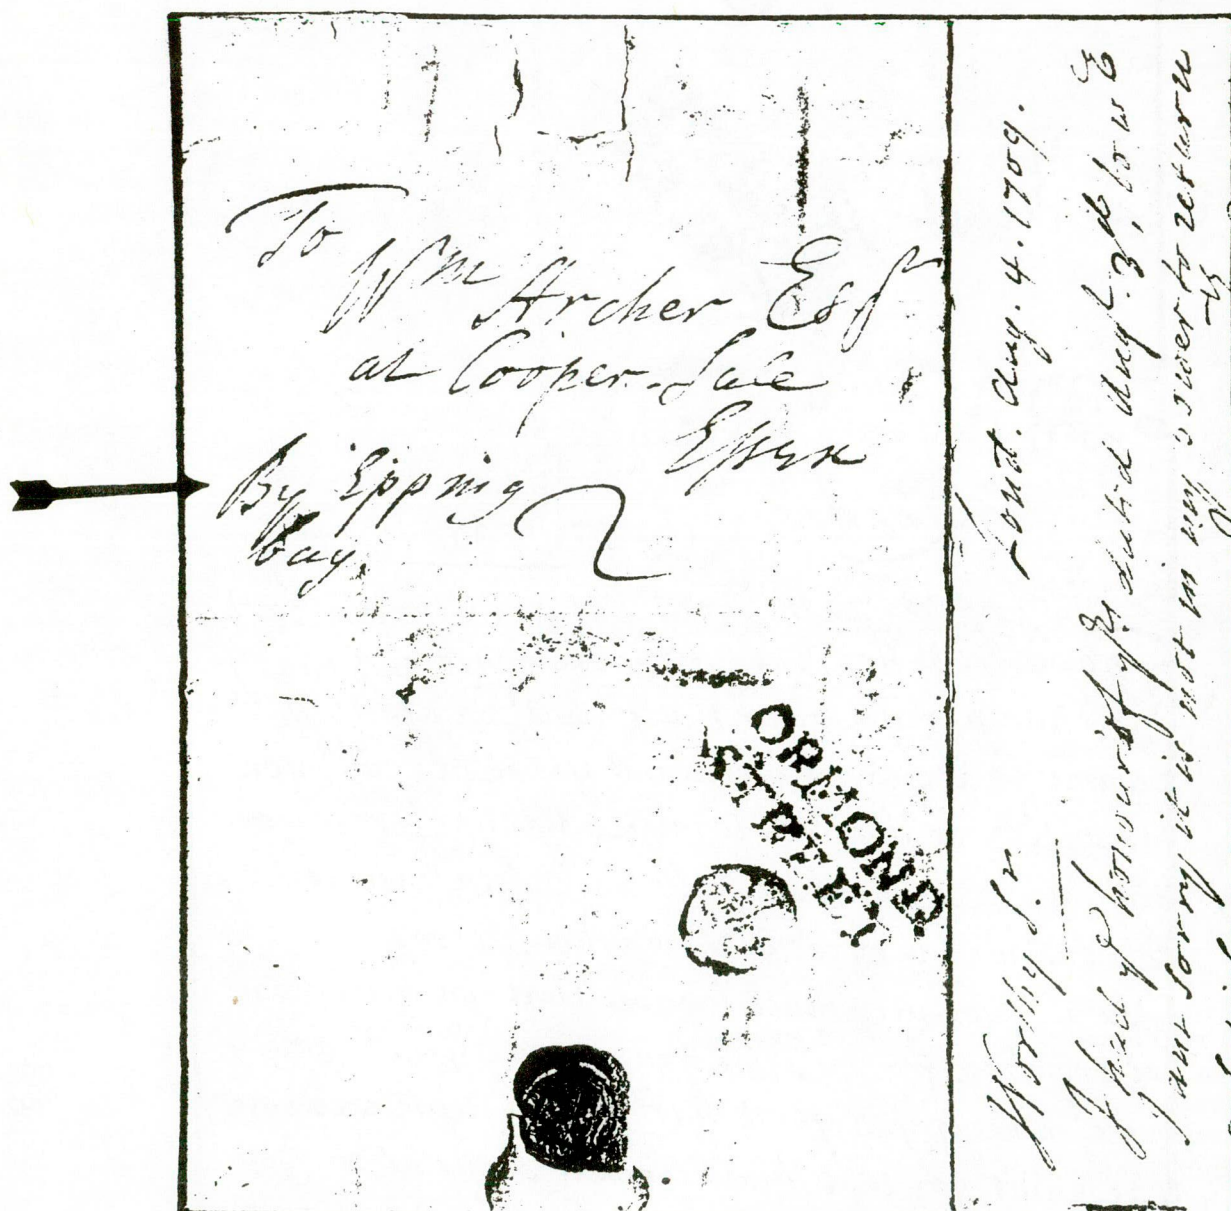 To
Wm Archer Esqr
at Cooper-Sale
Essex
By Epping
bag
ORMOND
STREET
Lond. Aug. 4. 1709.
Worthy Sr
I had ye honour of yrs dated Augt. 3d, to us
I am sorry it is not in my power to return